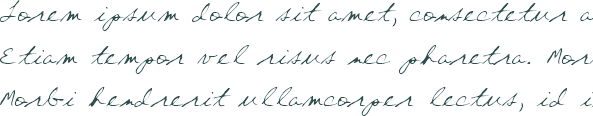 Lorem ipsum dolor sit amet, consectetur a
Etiam tempor vel risus nec pharetra. Mor
Morbi hendrerit ullamcorper lectus, id i